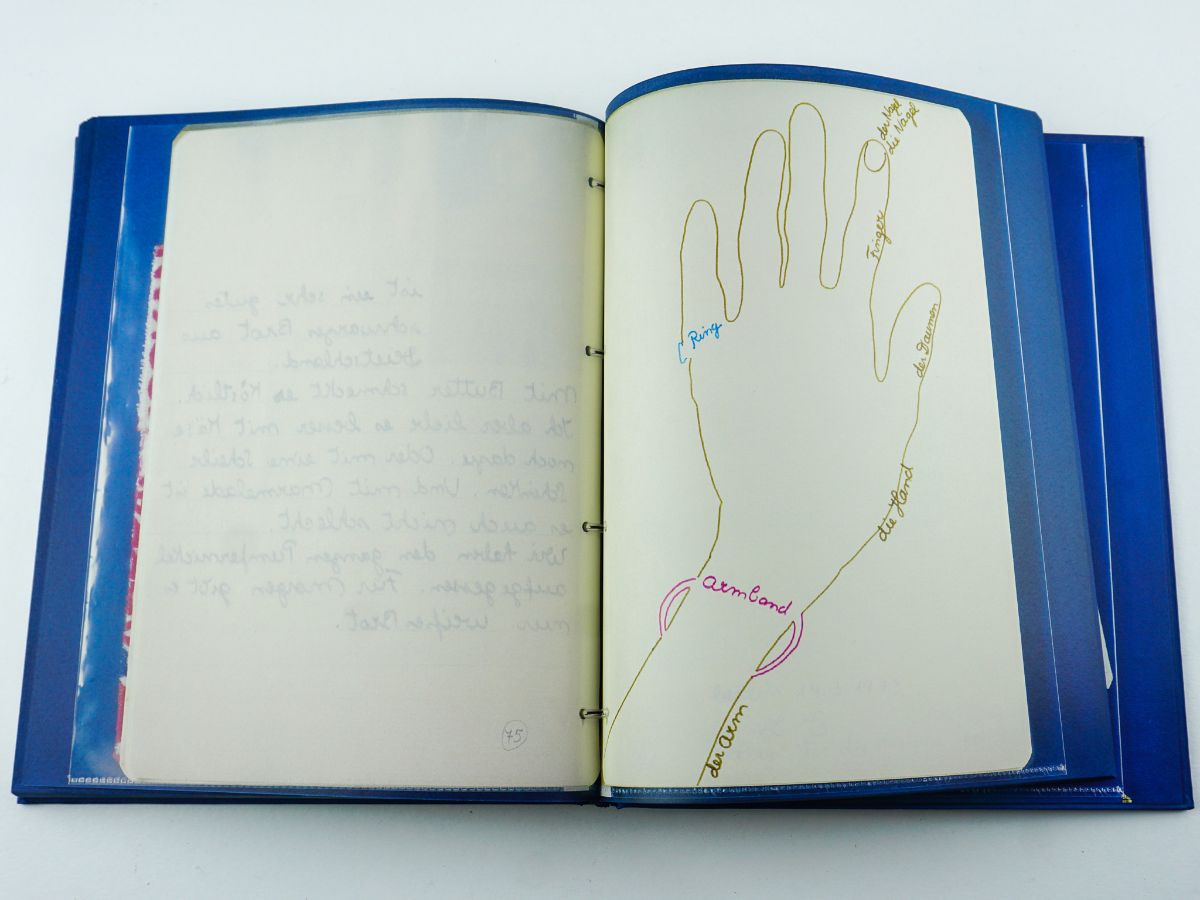 ist ein sehr gutes
schwarzes Brot aus
Deutschland.
Mit Butter schmeckt es Köstlich.
Ich aber liebe es besser mit Käse
noch dazu. Oder mit eine
Schinken. Und mit Marmelade ist
es auch nicht schlecht
Wir haben den ganzen Pumpernickel
aufgegessen. Für Morgen gibt es
nur weißes Brot.
75
der Nagel
die Nägel
Finger
Ring
der Daumen
die Hand
armband
der arm